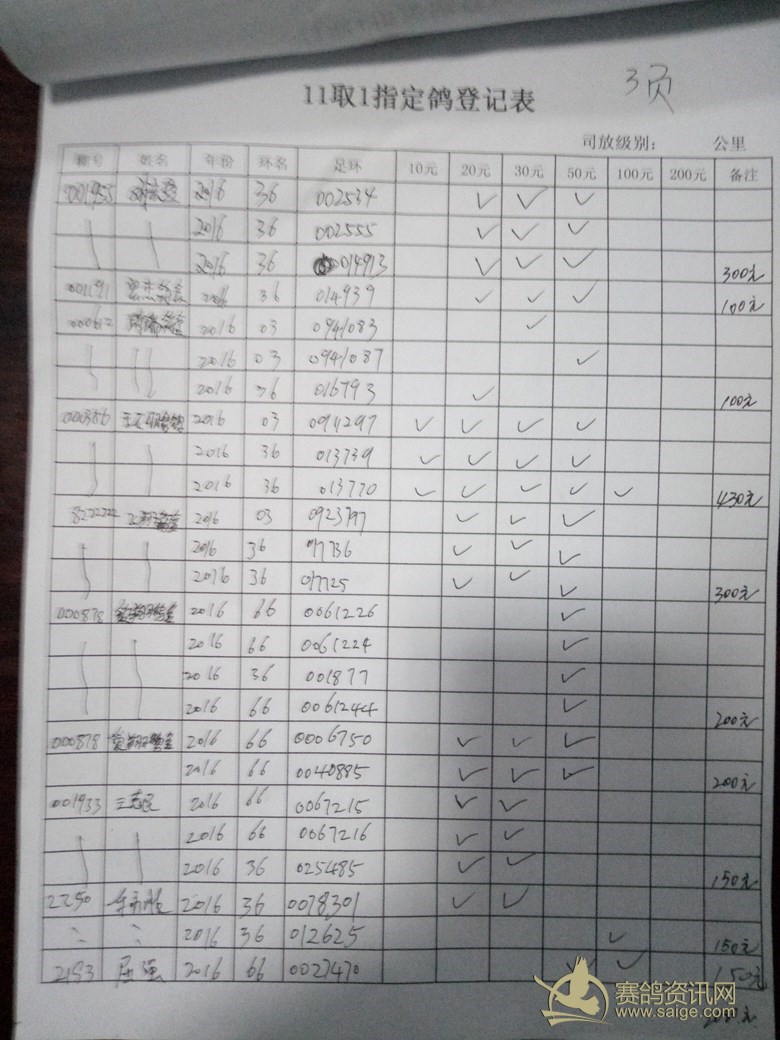 11取1指定鸽登记表
3页
司放级别： 公里
棚号 姓名 年份 环名 足环 10元 20元 30元 50元 100元 200元 备注
001955 2016 36 002534 ✓ ✓ ✓
2016 36 002555 ✓ ✓ ✓
2016 36 014913 ✓ ✓ ✓ 300元
001191 2016 36 014939 ✓ ✓ ✓ 100元
2016 03 0941083 ✓
2016 03 0941087 ✓
2016 36 016793 ✓ 100元
000386 2016 03 094297 ✓ ✓ ✓ ✓
2016 36 013739 ✓ ✓ ✓ ✓
2016 36 013770 ✓ ✓ ✓ ✓ ✓ 430元
8222222 2016 03 ✓ ✓ ✓
2016 36 017736 ✓ ✓ ✓
2016 36 017725 ✓ ✓ ✓ 300元
000878 2016 66 0061226 ✓
2016 66 0061224 ✓
2016 36 001877 ✓
2016 66 0061244 ✓ 200元
000878 2016 66 0006750 ✓ ✓ ✓
2016 66 0040885 ✓ ✓ ✓ 200元
001933 2016 66 0067215 ✓ ✓
2016 66 0067216 ✓ ✓
2016 36 025485 ✓ ✓ 150元
2250 2016 36 0078301 ✓ ✓
2016 36 012625 ✓ 150元
2193 屈强 2016 66 0027470 ✓ ✓ 150元
赛鸽资讯网
www.saige.com